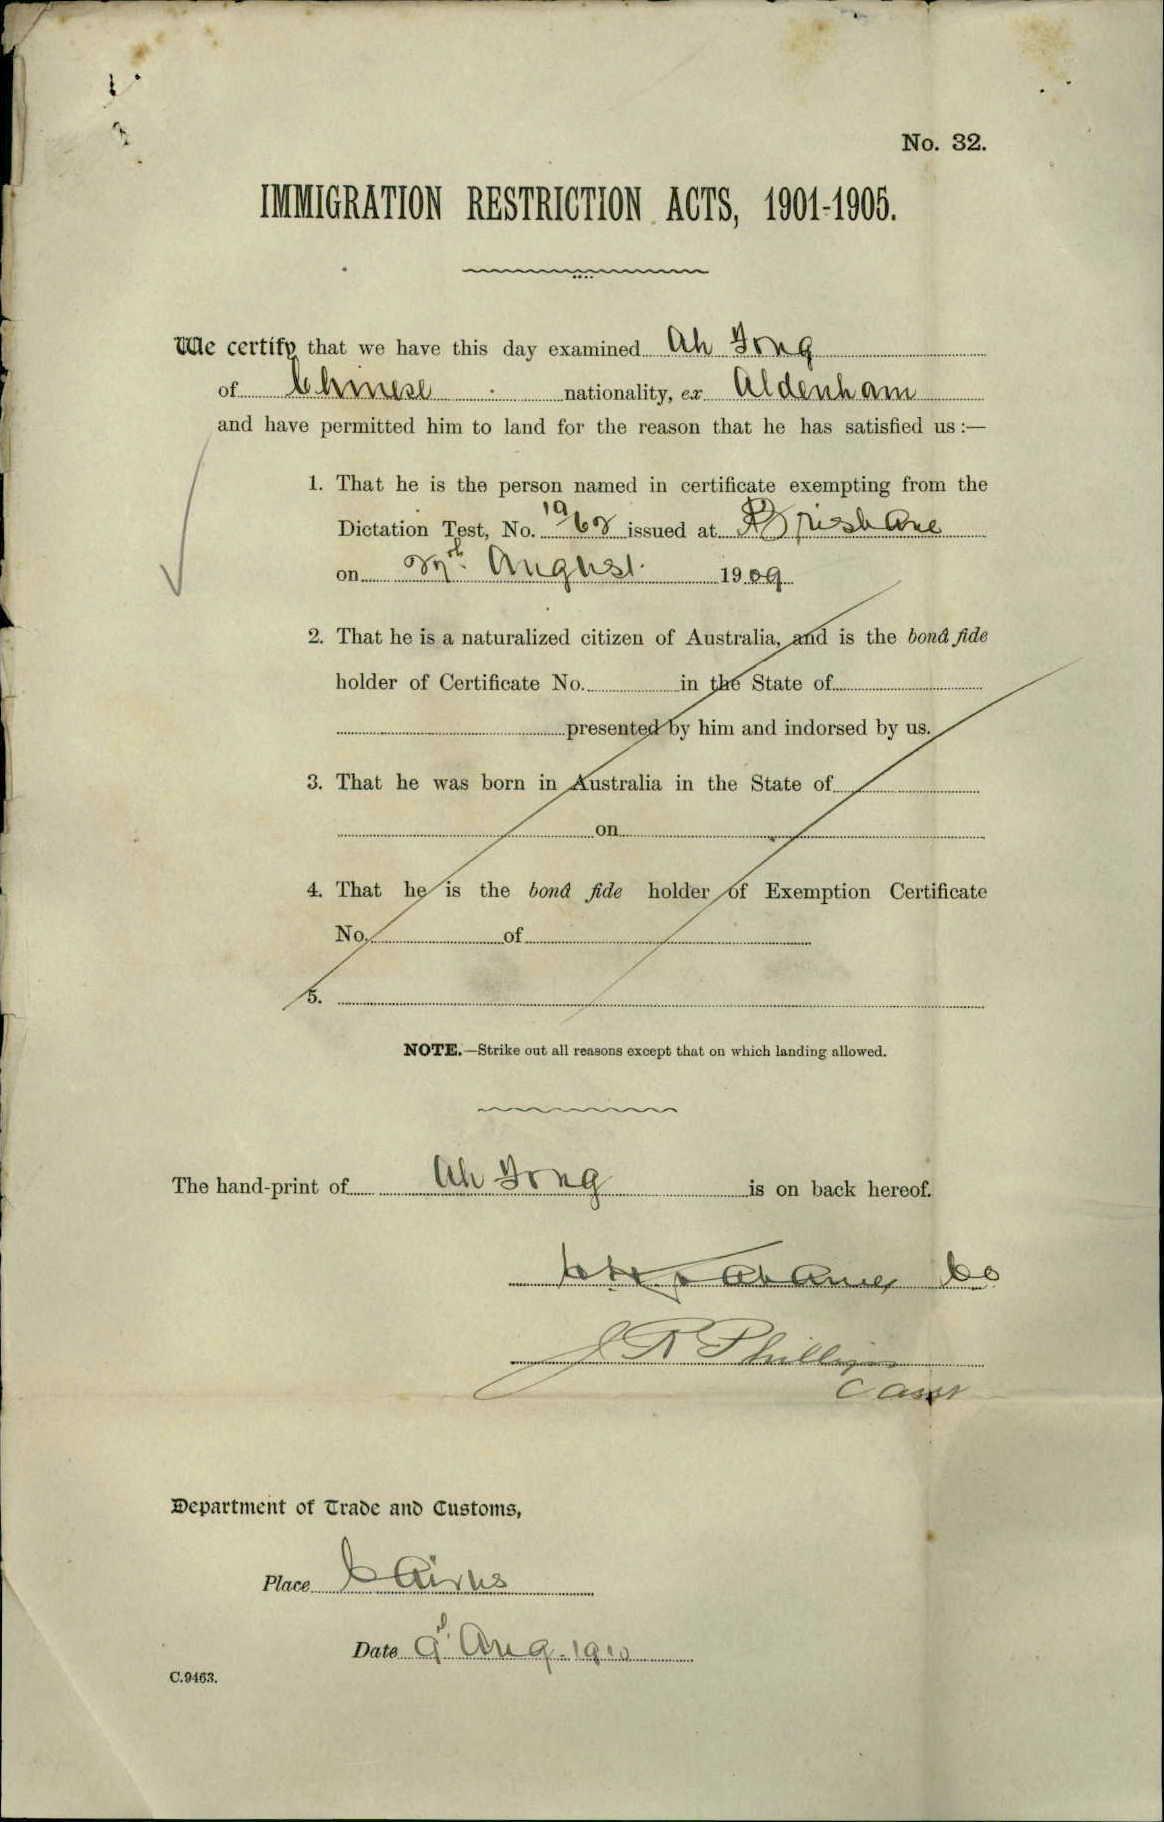 No. 32.
IMMIGRATION RESTRICTION ACTS, 1901-1905.
We certify that we have this day examined Ah Fong
of Chinese nationality, ex Aldenham
and have permitted him to land for the reason that he has satisfied us :—
1. That he is the person named in certificate exempting from the
Dictation Test, No. issued at Brisbane
on August 1909
2. That he is a naturalized citizen of Australia, and is the bonâ fide
holder of Certificate No. in the State of
presented by him and indorsed by us.
3. That he was born in Australia in the State of
on
4. That he is the bonâ fide holder of Exemption Certificate
No. of
5.
NOTE.—Strike out all reasons except that on which landing allowed.
The hand-print of Ah Fong is on back hereof.
Co
J R Phillips
Department of Trade and Customs,
Place Cairns
Date 9th Aug. 1910
C.9463.